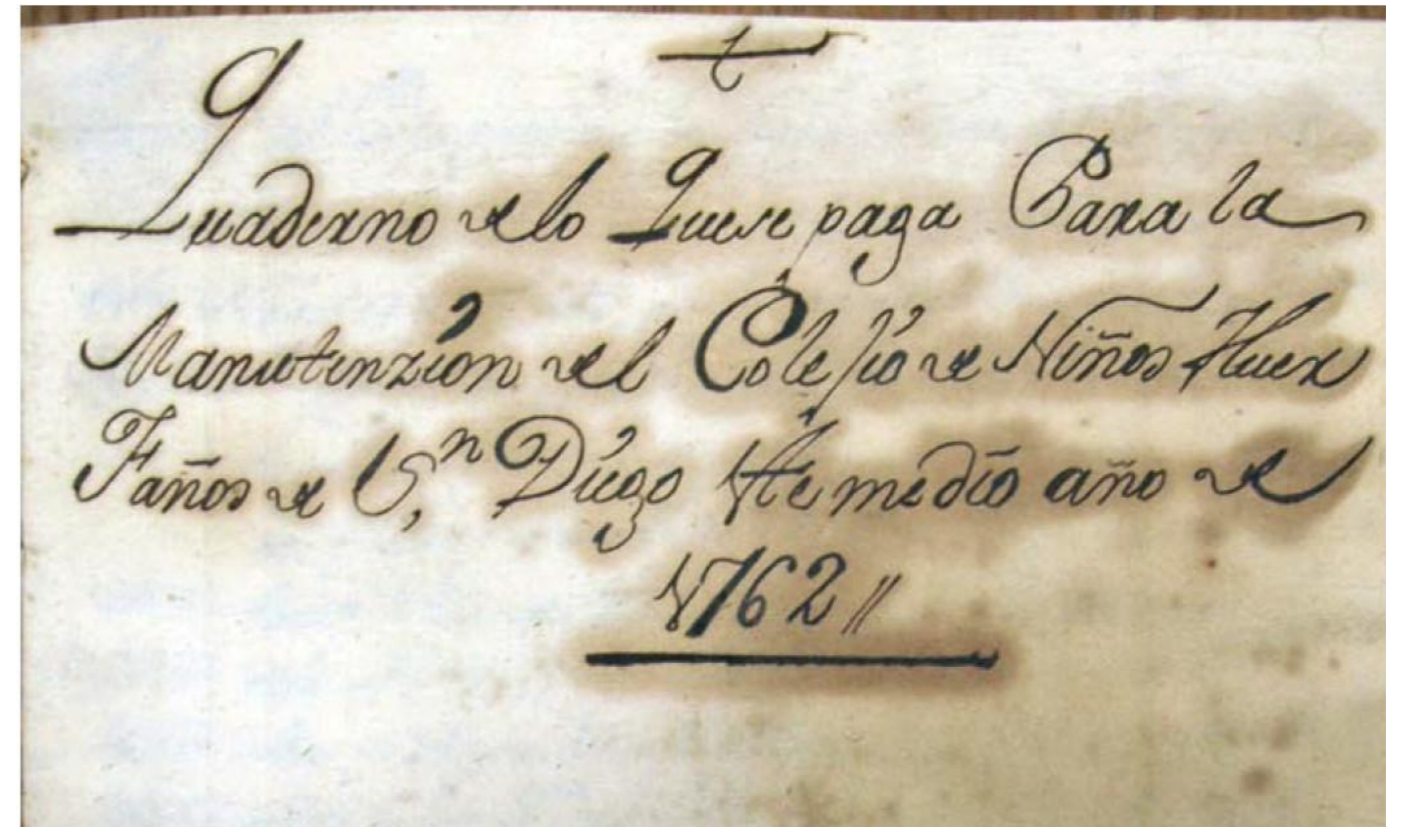 Quaderno de lo Quese paga Para la
Manutenzion del Colejio de Niños Huer
Faños de Sn Diego de medio año de
1762